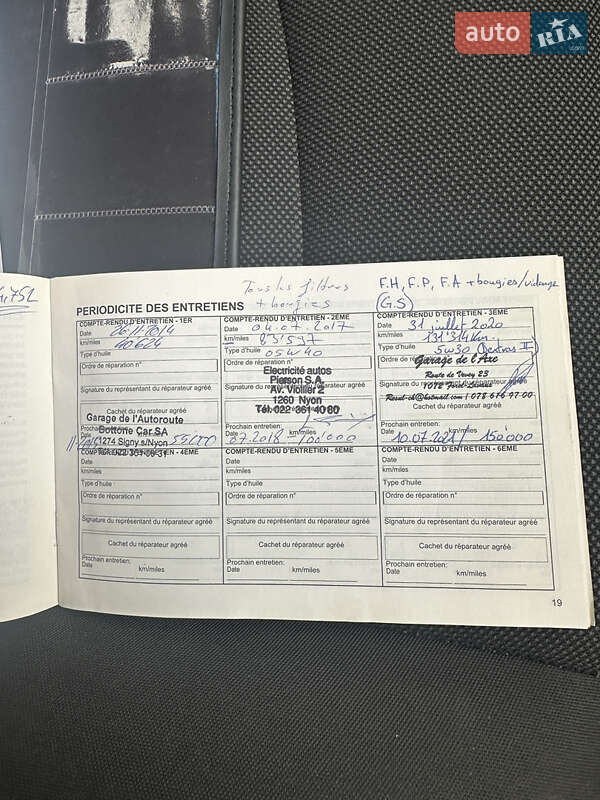 auto RIA.com
4,75L
Tous les filtres
+ bougies
F.H, F.P, F.A + bougies/vidange
G.S
PERIODICITE DES ENTRETIENS
COMPTE-RENDU D'ENTRETIEN - 1ER
Date 26.11.2014
km/miles 40624
Type d'huile
Ordre de réparation n°
Signature du représentant du réparateur agréé
Cachet du réparateur agréé
Garage de l'Autoroute
Bottone Car SA
1274 Signy s/Nyon
Prochain entretien:
Date km/miles
COMPTE-RENDU D'ENTRETIEN - 2EME
Date 04.07.2017
km/miles 83'597
Type d'huile 05W40
Ordre de réparation n°
Electricité autos
Pierson S.A.
Av. Viollier 2
1260 Nyon
Tél. 022 361 40 80
Signature du représentant du réparateur agréé
Cachet du réparateur agréé
Prochain entretien:
Date 07.2018 km/miles 100'000
COMPTE-RENDU D'ENTRETIEN - 3EME
Date 31 juillet 2020
km/miles 131'314 km
Type d'huile 5W30
Ordre de réparation n°
Garage de l'Axe
Route de Vevey 23
1072 Forel (Lavaux)
078 616 97 00
Signature du représentant du réparateur agréé
Cachet du réparateur agréé
Prochain entretien:
Date 10.07.2021 km/miles 150'000
COMPTE-RENDU D'ENTRETIEN - 4EME
Date
km/miles
Type d'huile
Ordre de réparation n°
Signature du représentant du réparateur agréé
Cachet du réparateur agréé
Prochain entretien:
Date km/miles
COMPTE-RENDU D'ENTRETIEN - 5EME
Date
km/miles
Type d'huile
Ordre de réparation n°
Signature du représentant du réparateur agréé
Cachet du réparateur agréé
Prochain entretien:
Date km/miles
COMPTE-RENDU D'ENTRETIEN - 6EME
Date
km/miles
Type d'huile
Ordre de réparation n°
Signature du représentant du réparateur agréé
Cachet du réparateur agréé
Prochain entretien:
Date km/miles
19